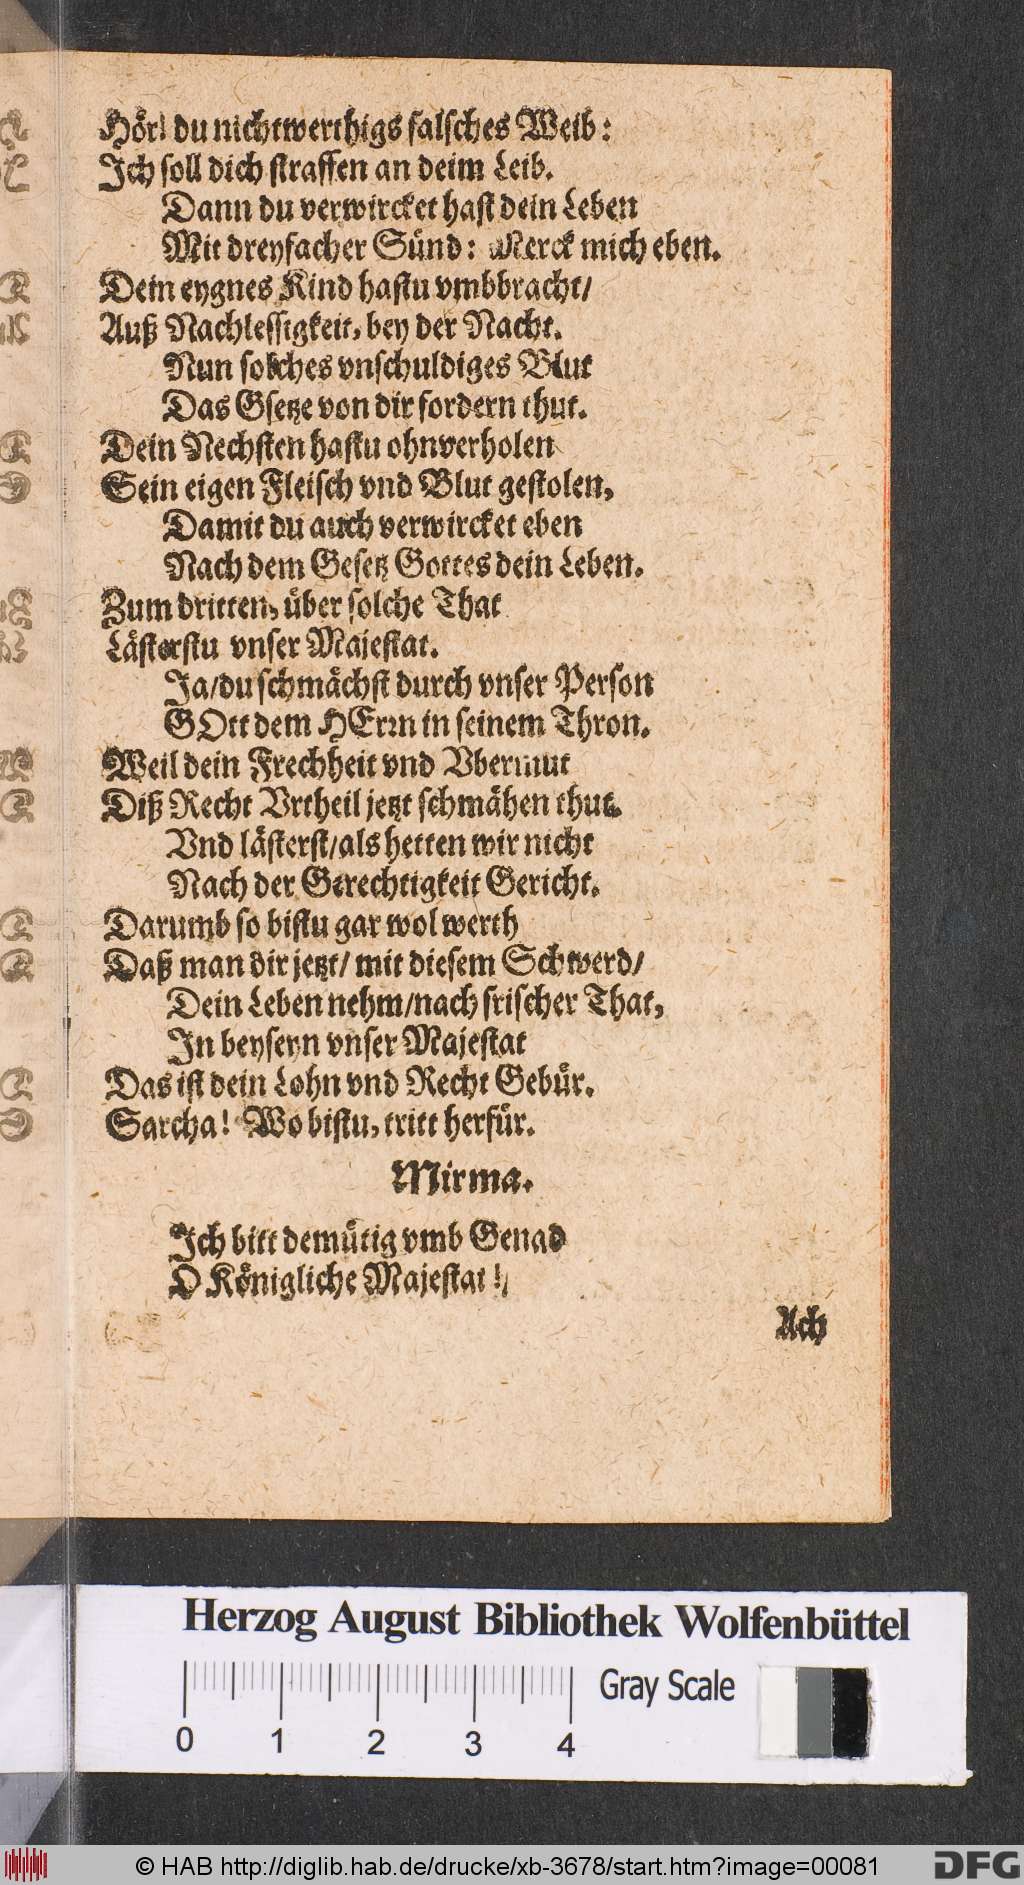 Hör! du nichtwerthigs falsches Weib:
Ich soll dich straffen an deim Leib.
Dann du verwircket hast dein Leben
Mit dreyfacher Sünd: Merck mich eben.
Dein eygnes Kind hastu vmbbracht/
Auß Nachlessigkeit, bey der Nacht.
Nun solches vnschuldiges Blut
Das Gsetze von dir fordern thut.
Dein Nechsten hastu ohnverholen
Sein eigen Fleisch vnd Blut gestolen,
Damit du auch verwircket eben
Nach dem Gesetz Gottes dein Leben.
Zum dritten, über solche That
Lästerstu vnser Majestat.
Ja/du schmächst durch vnser Person
GOtt dem HErrn in seinem Thron.
Weil dein Frechheit vnd Vbermut
Diß Recht Vrtheil jetzt schmähen thut.
Vnd lästerst/als hetten wir nicht
Nach der Gerechtigkeit Gericht.
Darumb so bistu gar wol werth
Daß man dir jetzt/ mit diesem Schwerd/
Dein Leben nehm/nach frischer That,
In beyseyn vnser Majestat
Das ist dein Lohn vnd Recht Gebür.
Sarcha! Wo bistu, tritt herfür.
Mirma.
Ich bitt demütig vmb Genad
O Königliche Majestat!/
Ach
Herzog August Bibliothek Wolfenbüttel
Gray Scale
0 1 2 3 4
© HAB http://diglib.hab.de/drucke/xb-3678/start.htm?image=00081
DFG